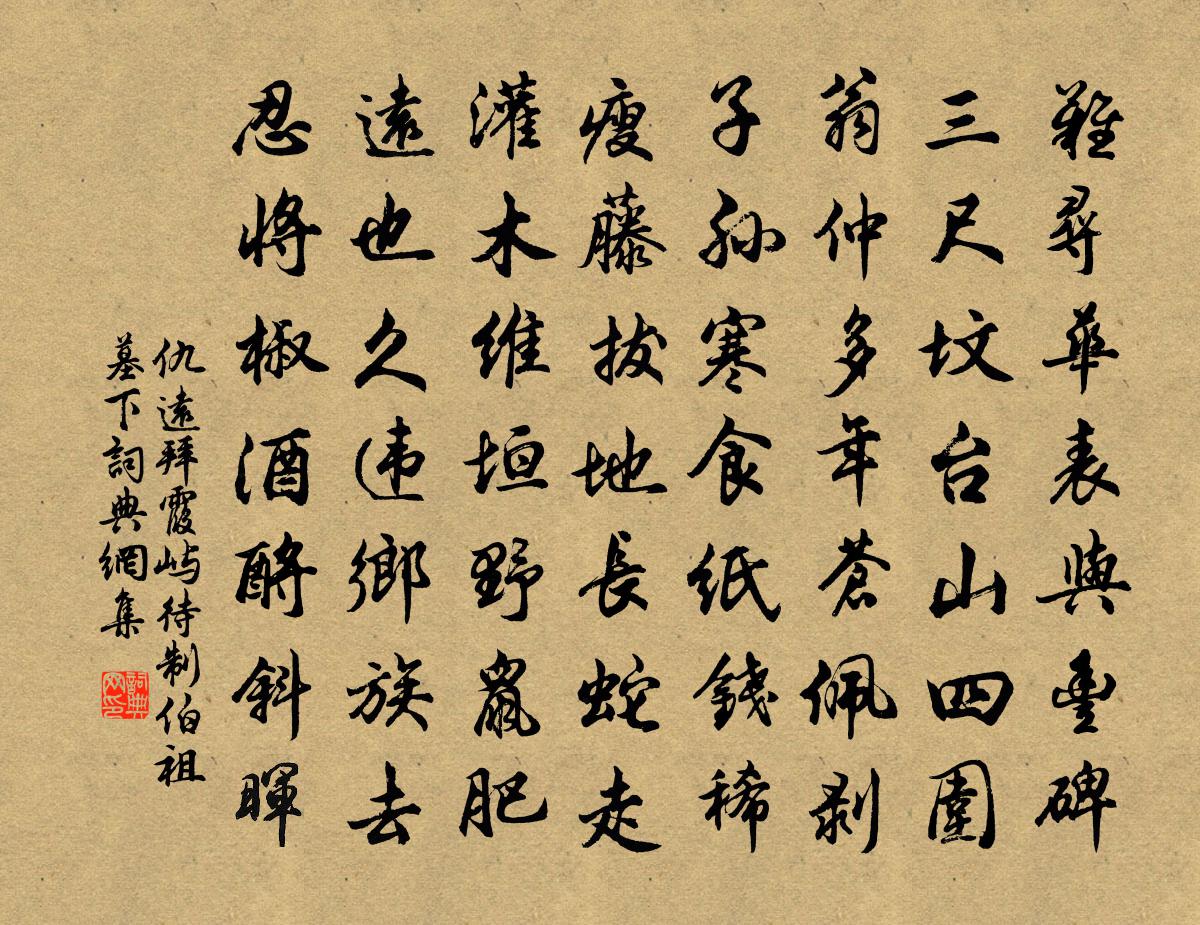 難尋華表與豊碑
三尺坟台山四圍
翁仲多年苍佩剥
子孫寒食纸錢稀
瘦藤拔地長蛇走
灌木维垣野鼠肥
遠也久违鄉族去
忍將椒酒酹斜暉
仇遠拜霞屿待制伯祖
墓下詞典網集
詞典网印